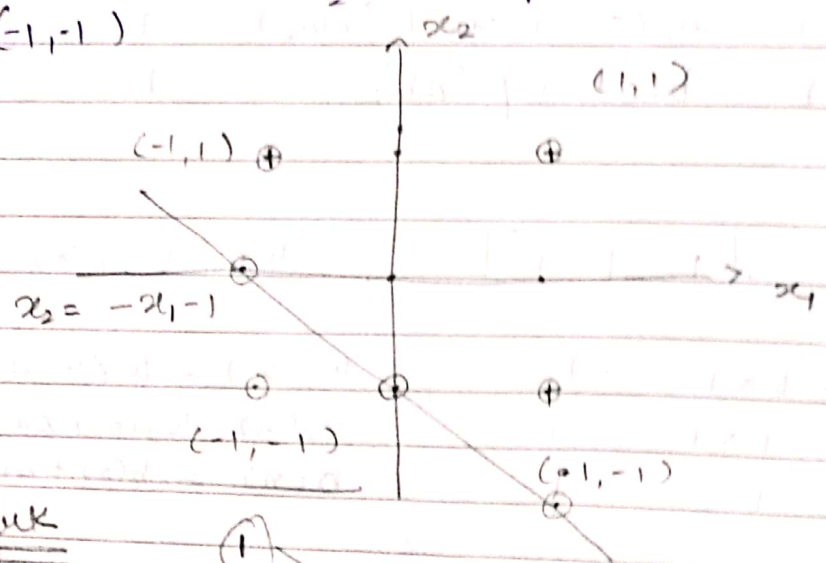 (-1,-1)
x₂
(1,1)
(-1,1)
x₁
x₂ = -x₁-1
(-1,-1)
(1,-1)
1